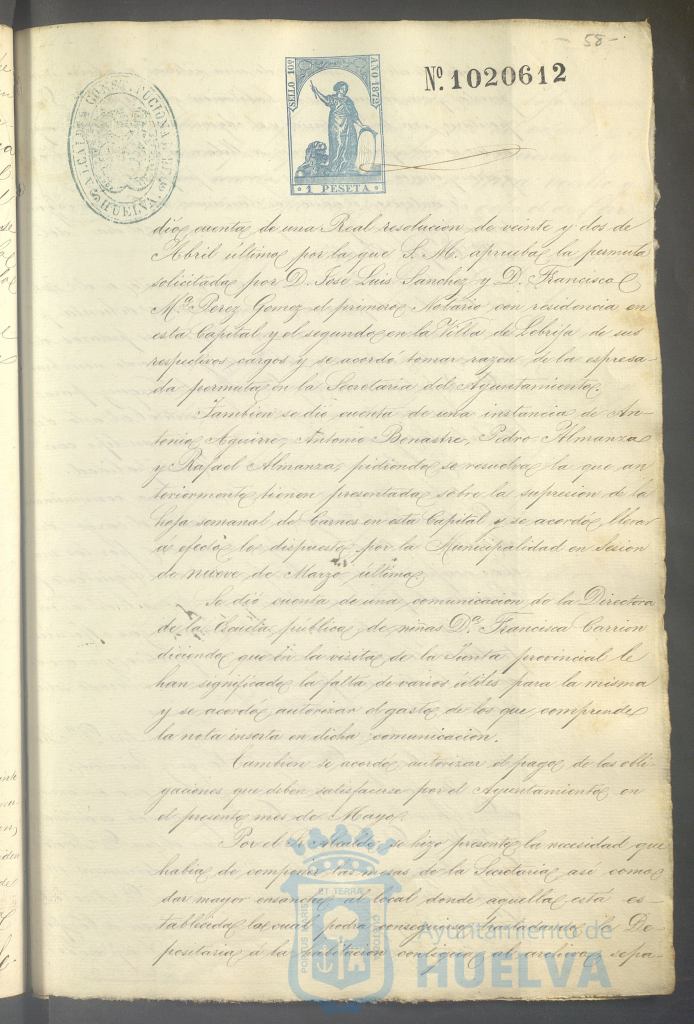 - 58 -
SELLO 10º
AÑO 1872
1 PESETA
Nº 1020612
ALCALDIA CONSTITUCIONAL
HUELVA
dió cuenta de una Real resolucion de veinte y dos de
Abril último por la que S. M. aprueba la permuta
solicitada por D. José Luis Sanchez y D. Francisco
Mª Perez Gomez el primero Notario con residencia en
esta Capital y el segundo en la Villa de Lebrija de sus
respectivos cargos y se acordó tomar razon de la espresa-
da permuta en la Secretaria del Ayuntamiento.
Tambien se dió cuenta de una instancia de An-
tonio Aguirre, Antonio Benastre, Pedro Almanza
y Rafael Almanza, pidiendo se resuelva la que an
teriormente tienen presentada sobre la supresion de la
hoja semanal de Carnes en esta Capital y se acordó llevar
á efecto lo dispuesto por la Municipalidad en Sesion
de nueve de Marzo último.
Se dió cuenta de una comunicacion de la Directora
de la Escuela pública de niñas Dª Francisca Carrion
diciendo que en la visita de la Junta provincial le
han significado la falta de varios útiles para la misma
y se acordó autorizar el gasto de los que comprende
la nota inserta en dicha comunicacion.
Tambien se acordó autorizar el pago de las obli-
gaciones que deben satisfacerse por el Ayuntamiento en
el presente mes de Mayo.
Por el Sr Alcalde se hizo presente la necesidad que
habia de componer las mesas de la Secretaria asi como
dar mayor ensanche al local donde aquella está es-
tablecida lo cual podia conseguirse trasladando la De
positaria á la habitacion contigua al archivo, sepa-
PORTUS MARIS
ET TERRAE
CUSTODIA
Ayuntamiento de
HUELVA